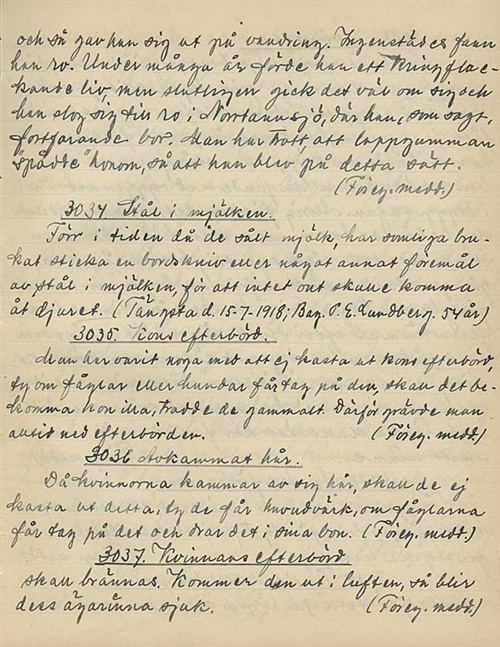 och så gav han sig ut på vandring. Ingenstädes fann
han ro. Under många år förde han ett kringflac-
kande liv, men slutligen gick det väl om sig och
han slog sig till ro i Norrtannsjö, där han, som sagt,
fortfarande bor. Man har trott, att lappgumman
"spådde" honom, så att han blev på detta sätt.
(Föreg. medd.)
3034 Stål i mjölken.
Förr i tiden då de sålt mjölk, har somliga bru-
kat sticka en bordskniv eller något annat föremål
av stål i mjölken, för att intet ont skulle komma
åt djuret. (Tängsta d. 15-7-1918; Bag. P. E. Lundberg. 54 år)
3035. Kons efterbörd.
Man har varit noga med att ej kasta ut kons efterbörd,
ty om fåglar eller hundar får tag på den, skall det be-
komma kon illa, trodde de gammalt. Därför grävde man
alltid ned efterbörden. (Föreg. medd.)
3036 Avkammat hår.
Då kvinnorna kammar av sig hår, skall de ej
kasta ut detta, ty de får huvudvärk, om fåglarna
får tag på det och drar det i sina bon. (Föreg. medd.)
3037. Kvinnans efterbörd
skall brännas. Kommer den ut i luften, så blir
dess ägarinna sjuk. (Föreg. medd.)